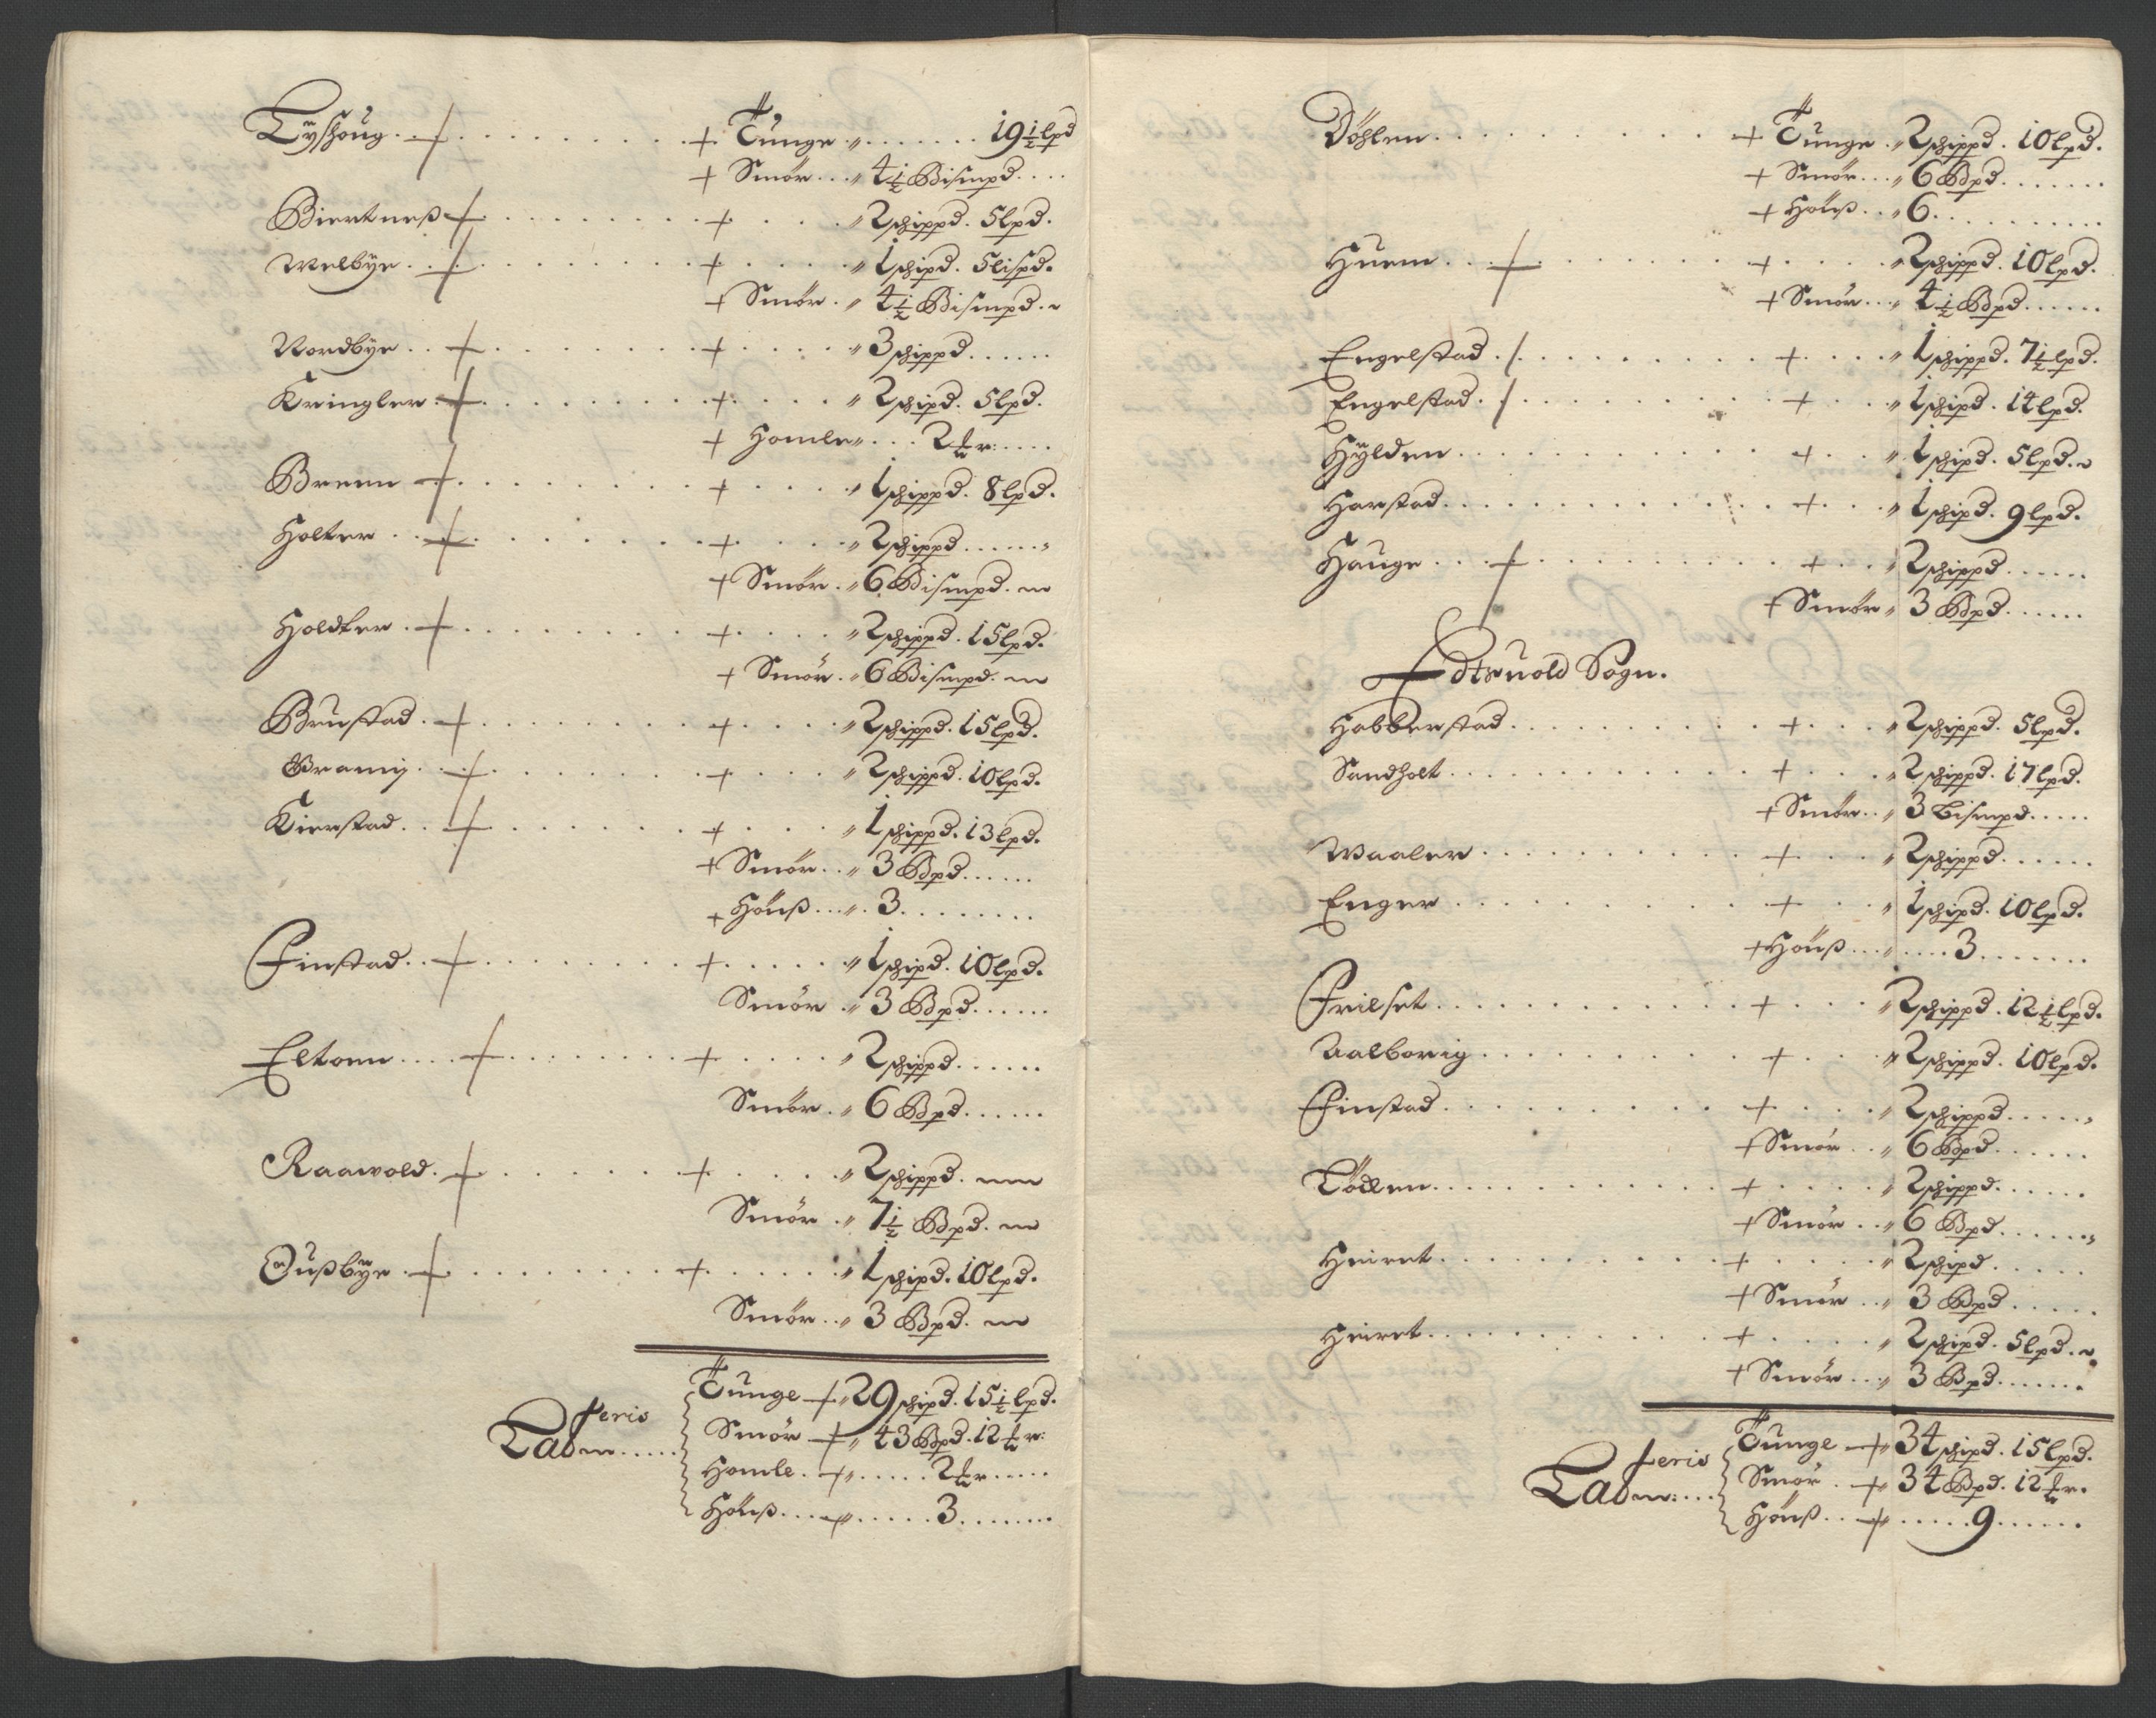 Lÿshoug . + . . . . . . . . + Tunge „ . . . . . . . 19½ lpd
+ Smör . . . „ 4½ Bismpd . . . .
Biertneß + . . . . . . . . + . . . . „ 2 schippd . 5 lpd .
Welbÿe . + . . . . . . . . + . . . . „ 1 schipd . 5 lispd .
+ Smör . „ 4½ Bismpd .
Nordbÿe . . + . . . . . . . + . . . . „ 3 schippd . . . . . .
Kringler . + . . . . . . . . + . . . . „ 2 schipd . 5 lpd .
+ Homle „ . . . 2 . . . .
Breen + . . . . . . . . + . . . . „ 1 schippd . 8 lpd .
Holter . . + . . . . . . . + . . . . „ 2 schippd . . . . . .
+ Smör . „ 6 Bismpd .
Holdter . + . . . . . . . . + . . . . „ 2 schippd . 15 lpd .
+ Smör . „ 6 Bismpd .
Brustad . + . . . . . . . . + . . . . „ 2 schippd . 15 lpd .
Gramij . . + . . . . . . . + . . . . „ 2 schippd . 10 lpd .
Kierstad . . + . . . . . . . + . . . . „ 1 schippd . 13 lpd .
+ Smör . . „ 3 Bpd . . . . . .
+ Hönß . . . „ . 3 . . . . . . . .
Finstad . . + . . . . . . . + . . . . . „ 1 schipd . 10 lpd .
Smör . „ 3 Bpd . . . . . .
Eltonn . . . . + . . . . . . . + . . . . „ 2 schippd . . . . . .
Smör . „ 6 Bpd . . . . . .
Raawold . + . . . . . . + . . . . „ 2 schippd .
Smör . „ 7½ Bpd .
Oußbÿe . + . . . . . . . . + . . . . . „ 1 schipd . 10 lpd .
Smör . . „ 3 Bpd .
Tunge + „ 29 schipd . 15½ lpd .
Lateris
Smör + „ 43 Bpd . 12
Homle . + „ . . . . . 2 . . . . .
Hönß . . . . + „ . . . . . 3 . . . . . . . .
Döhlen . . . . . . . . . . + Tunge . „ 2 schippd . 10 lpd .
+ Smör . . . „ 6 Bpd . . . . . . .
+ Hönß . . . „ 6 . . . . . . . . . .
Huem . . . + . . . . . . . + . . . . „ 2 schippd . 10 lpd .
+ Smör . . . „ 4½ Bpd . . . . . .
Engelstad . / . . . . . . . . . + . . . . „ 1 schippd . 7½ lpd .
Engelstad . / . . . . . . . . . + . . . „ 1 schipd . 14 lpd .
Hÿlden . . . . . . . . . . . + . . . „ 1 schipd . 5 lpd .
Harstad . . . . . . . . . . . . + . . . „ 1 schipd . 9 lpd .
Hauge . . . + . . . . . . . . . + . . . „ 2 schippd . . . . . .
+ Smör „ 3 Bpd . . . . . .
Edtsuold Sogn .
Habberstad . . . . . . . . . . + . . . „ 2 schippd . 5 lpd .
Sandholt . . . . . . . . . . . . + . . . „ 2 schippd . 17 lpd .
+ Smör . . „ 3 Bismpd . . . . .
Waaler . . . . . . . . . . + . . . „ 2 schippd . . . . . .
Enger . . . . . . . . . . + . . . „ 1 schipd . 10 lpd .
+ Hönß . . . „ . . . . 3 . . . . . . .
Frilset . . . . . . . . . . . . + . . . . „ 2 schippd . 12½ lpd .
Aalborig . . . . . . . . . . + . . . „ 2 schippd . 10 lpd .
Finstad . . . . . . . . . . + . . . . „ 2 schippd . . . . . .
+ Smör . . „ 6 Bpd . . . . . .
Lödken . . . . . . . . . . . + . . . . . „ 2 schippd . . . . . .
+ Smör . . „ 6 Bpd . . . . . . .
Heiret . . . . . . . . . . + . . . . . „ 2 schipd . . . . . .
+ Smör . . „ 3 Bpd . . . . .
Heiret . . . . . . . . . . . + . . . . . „ 2 schipd . 5 lpd .
+ Smör . . . „ 3 Bpd . . . . . . .
Tunge + „ 34 schipd . 15 lpd .
Lateris
Smör . + „ 34 Bpd . 12
Hönß . . . + „ . . . . . 9 . . . . . .